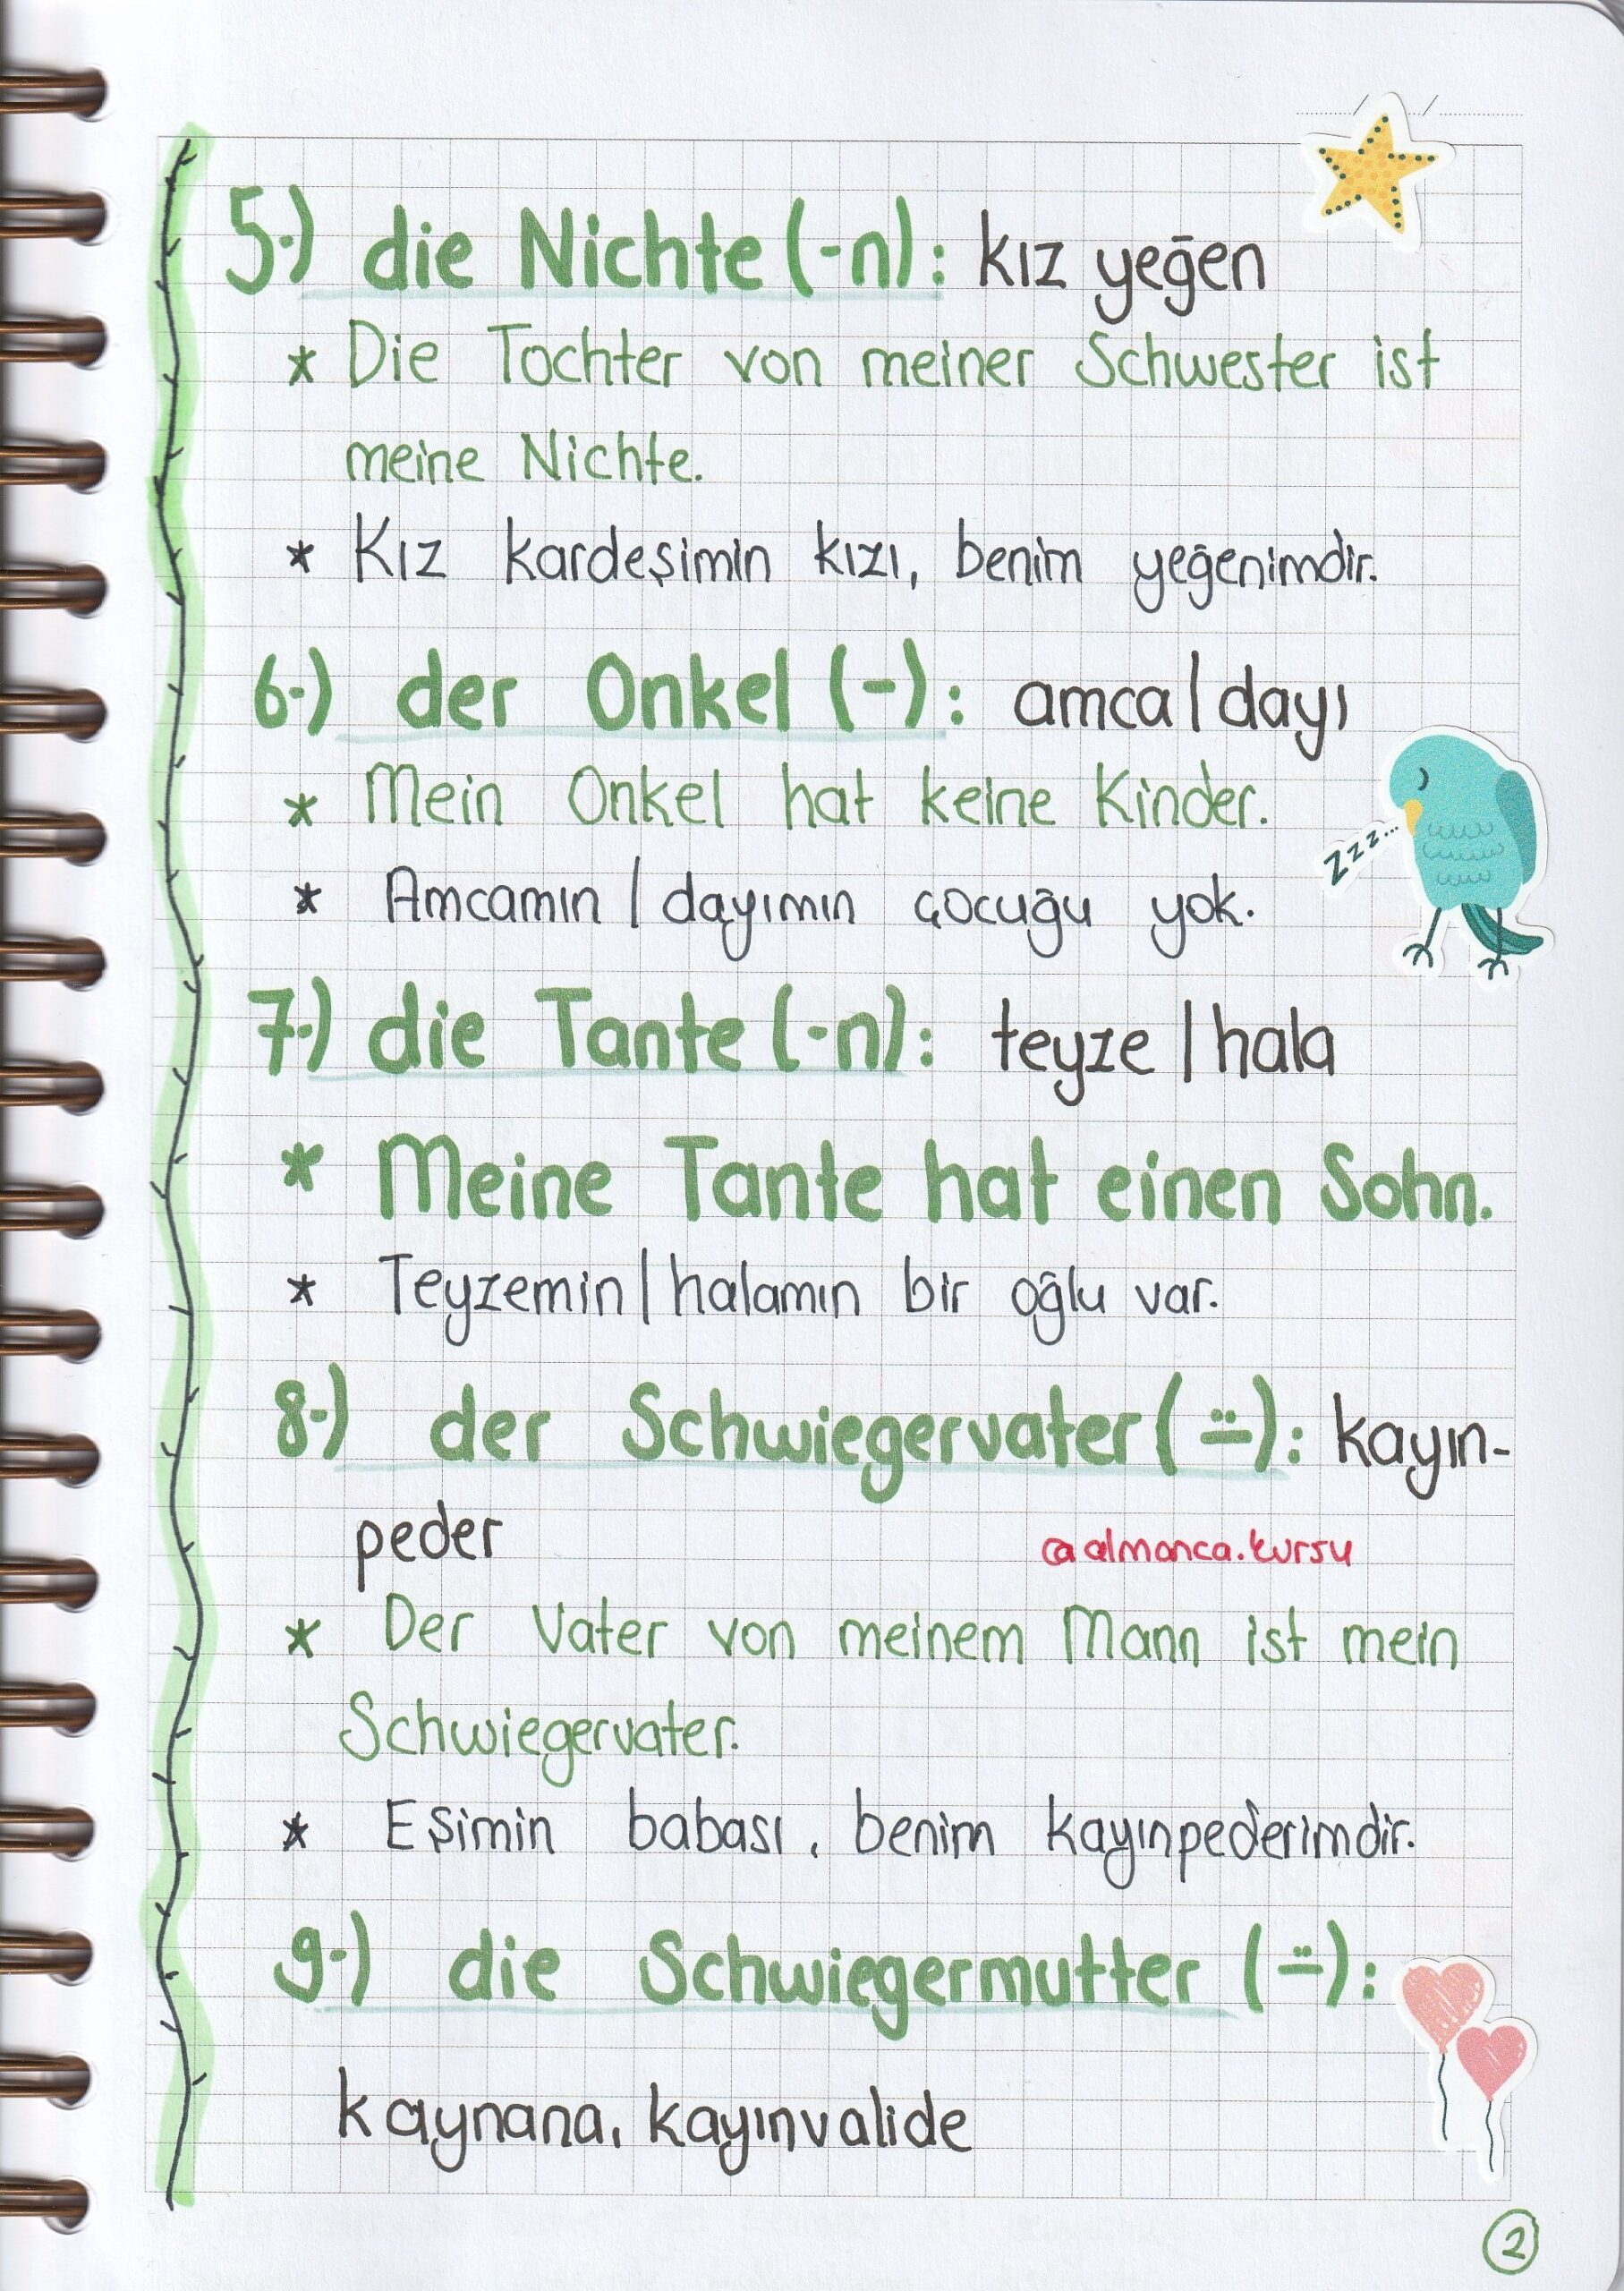 5-) die Nichte (-n): kız yeğen
* Die Tochter von meiner Schwester ist
meine Nichte.
* Kız kardeşimin kızı, benim yeğenimdir.
6-) der Onkel (-): amca | dayı
* Mein Onkel hat keine Kinder.
Zzz...
* Amcamın | dayımın çocuğu yok.
7-) die Tante (-n): teyze | hala
* Meine Tante hat einen Sohn.
* Teyzemin | halamın bir oğlu var.
8-) der Schwiegervater (-̈): kayın-
peder
@almanca.kursu
* Der Vater von meinem Mann ist mein
Schwiegervater.
* Eşimin babası, benim kayınpederimdir.
9-) die Schwiegermutter (-̈):
kaynana, kayınvalide
2